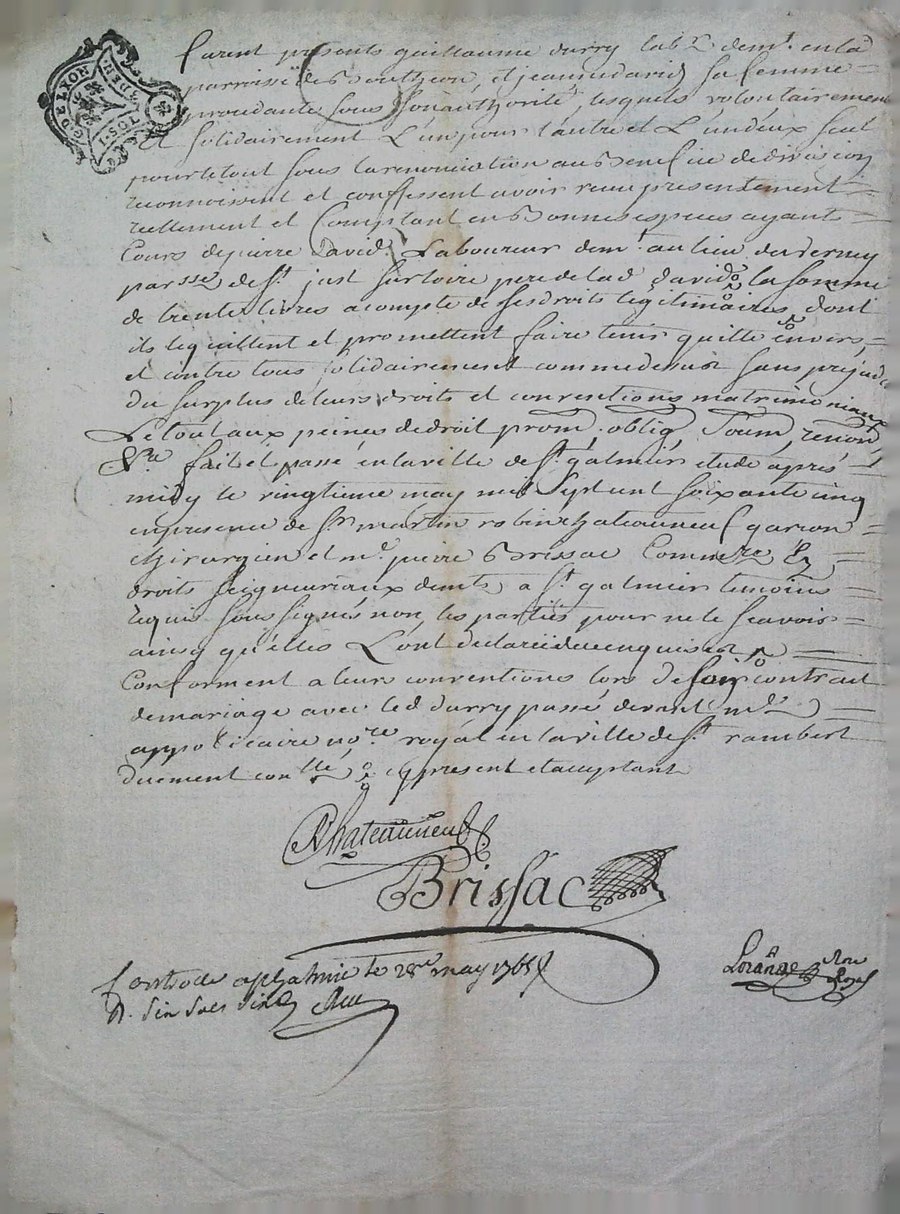 furent présents guillaume durry lab.r dem.t en la
parroisse de Boutheon, et jeanne david sa femme
procédante sous son authorité, lesquels volontairement
et solidairement l'un pour l'autre et l'un deux seul
pour le tout sous la renonciation au benefice de division
reconnoissent et confessent avoir receu presentement
réellement et comptant en bonnes especes ayant
cours de pierre david laboureur dem.t au lieu du
par.sse de S.t just sur loire pere de lad. david la somme
de trente livres a compte de ses droits legitimaires, dont
ils le quittent et promettent faire tenir quitte envers
et contre tous solidairement comme dessus sans préjudice
du surplus de leurs droits et conventions matrimoniaux
Le tout aux peines de droit prom. oblig. soum. renon.
&.a fait et passé en la ville de S.t galmier etude après
midy le vingtième may mil sept cent soixante cinq
en presence de S.r martin robin chateauneuf garcon
chirurgien et m.e pierre Brissac Comm.re es
droits seigneuriaux dem.ts a S.t galmier temoins
requis soussignés non les parties pour ne le scavoir
ainsy qu'elles l'ont declaré de ce enquises
conforment a leurs conventions lors de son contrat
de mariage avec led. durry passé devant m.e
appoticaire no.re royal en la ville de S.t rambert
duement con.llé, cy present et acceptant
RChateauneuf
Brissac
Loranne No.re Royal
Controllé a S.t galmier le 28.me may 1765
R. six sols six d.